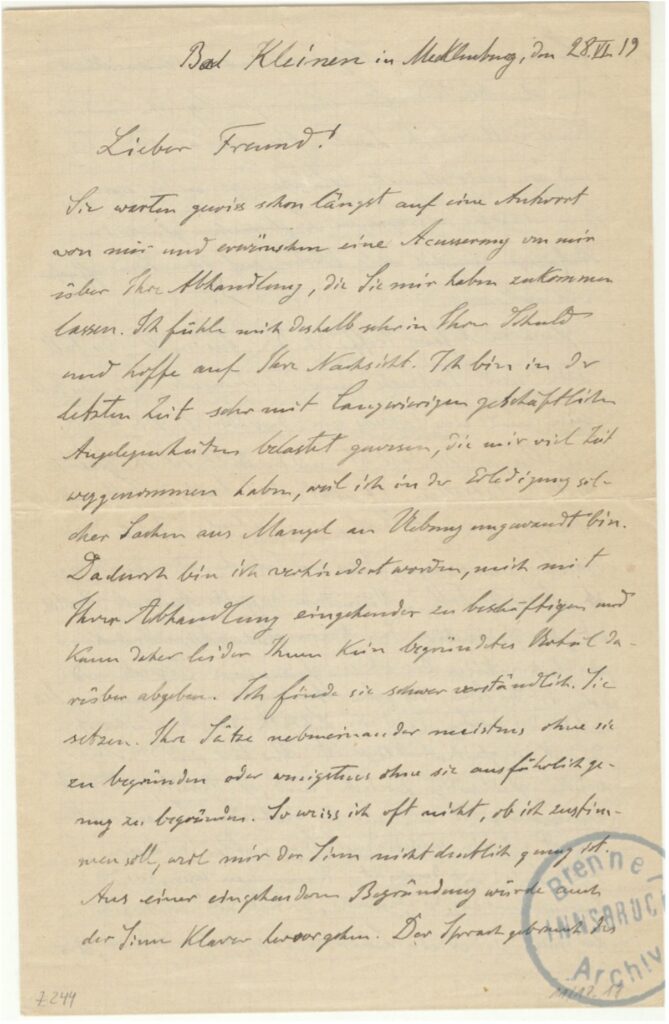 Bad Kleinen in Mecklenburg, den 28.VI.19
Lieber Freund!
Sie warten gewiss schon längst auf eine Antwort
von mir und erwünschen eine Aeusserung von mir
über Ihre Abhandlung, die Sie mir haben zukommen
lassen. Ich fühle mich deshalb sehr in Ihrer Schuld
und hoffe auf Ihre Nachsicht. Ich bin in der
letzten Zeit sehr mit langwierigen geschäftlichen
Angelegenheiten belastet gewesen, die mir viel Zeit
weggenommen haben, weil ich in der Erledigung sol-
cher Sachen aus Mangel an Uebung ungewandt bin.
Dadurch bin ich verhindert worden, mich mit
Ihrer Abhandlung eingehender zu beschäftigen und
kann daher leider Ihnen kein begründetes Urteil da-
rüber abgeben. Ich finde sie schwer verständlich. Sie
setzen Ihre Sätze nebeneinander meistens ohne sie
zu begründen oder wenigstens ohne sie ausführlich ge-
nug zu begründen. So weiss ich oft nicht, ob ich zustim-
men soll, weil mir der Sinn nicht deutlich genug ist.
Aus einer eingehenden Begründung würde auch
der Sinn klarer hervorgehen. Der Sprachgebrauch des
Brenner-
INNSBRUCK
Archiv
7.244